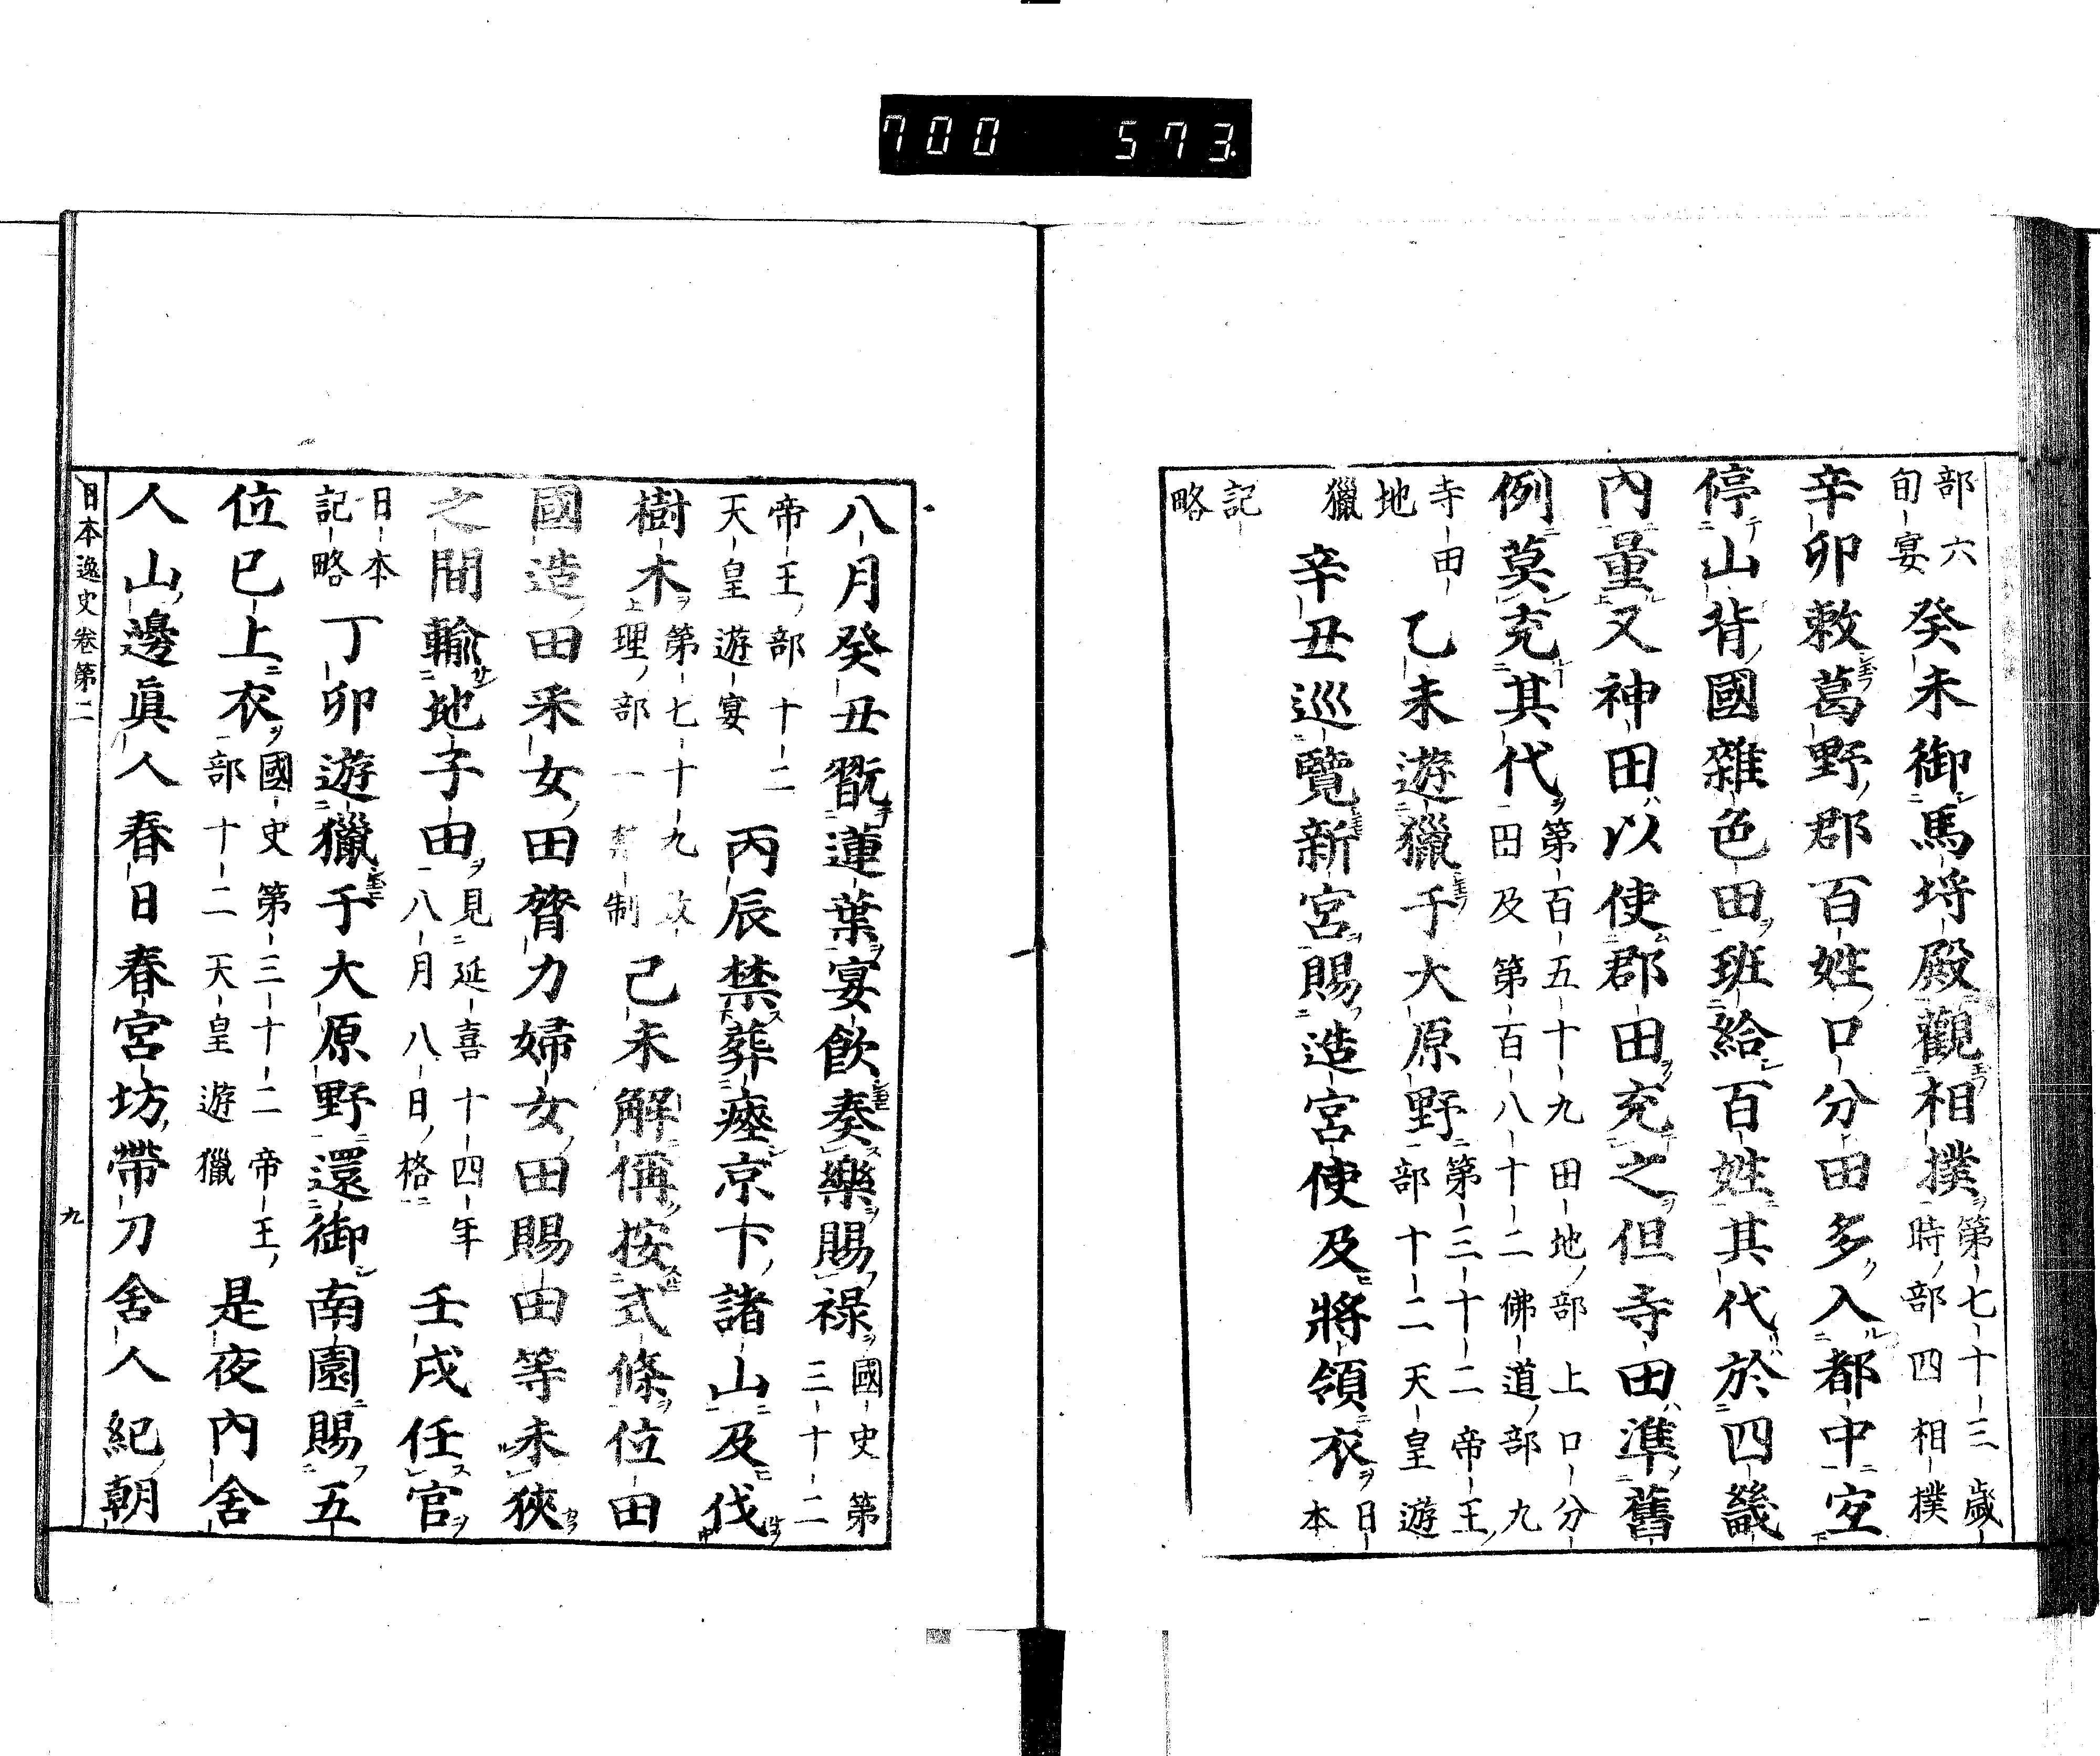 700 573.
部六旬宴癸未御馬埒殿觀相撲第七十三歲時部四相撲
辛卯敕葛野郡百姓口分田多入都中宜
停山背國雜色田班給百姓其代於四畿
內量又神田以使郡田充之但寺田準舊
例莫充其代第百五十九田地部上口分田及第百八十二佛道部九
寺田地乙未遊獵于大原野第三十二帝王部十二天皇遊
獵辛丑巡覽新宮賜造宮使及將領衣日本
記略
八月癸丑翫蓮葉宴飲奏樂賜祿國史第三十二
帝王部十二天皇遊宴丙辰禁葬瘞京下諸山及伐
樹木第七十九政理部一禁制己未解偁按式條位田
國造田采女田膂力婦女田賜田等未狹
之間輸地子田見延喜十四年八月八日格壬戌任官
日本記略丁卯遊獵于大原野還御南園賜五
位已上衣國史第三十二帝王部十二天皇遊獵是夜內舍
人山邊眞人春日春宮坊帶刀舍人紀朝
日本逸史卷第二 九